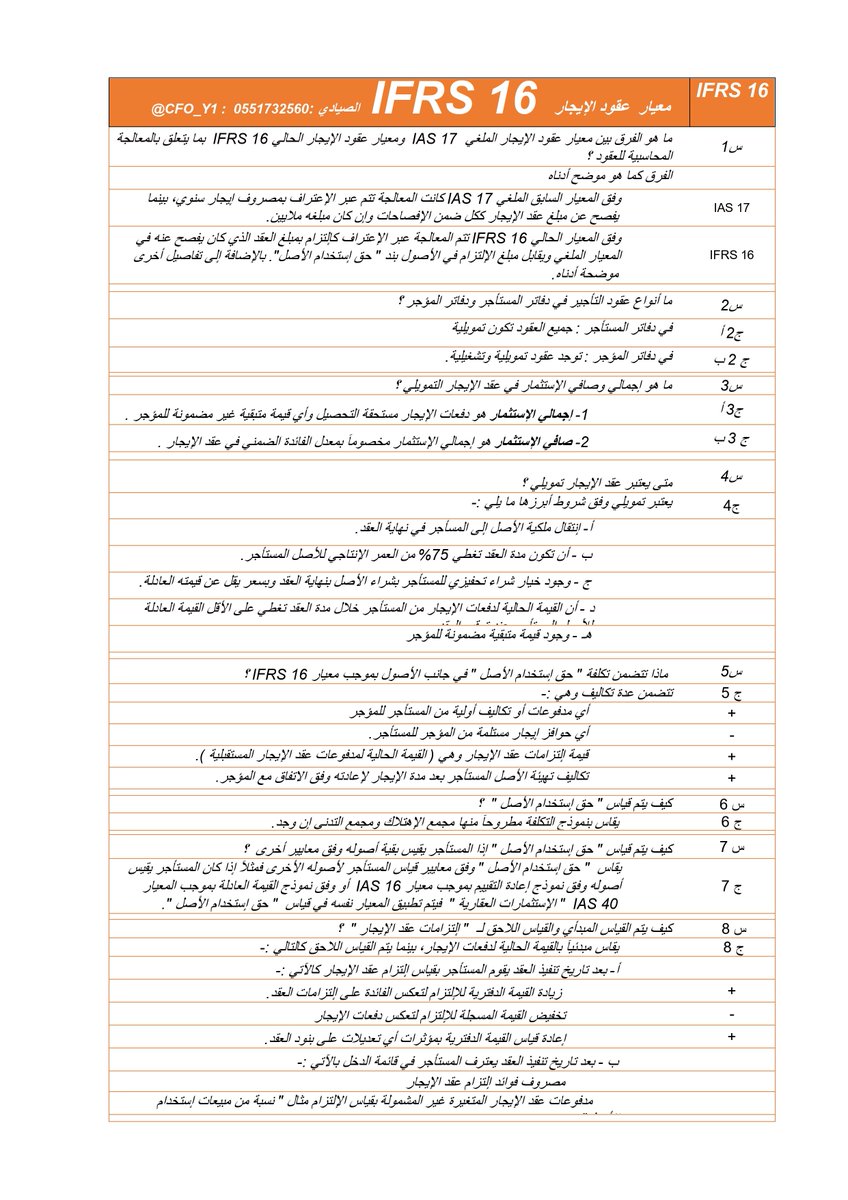 IFRS 16 معيار عقود الإيجار IFRS 16 الصيادي :0551732560 : @CFO_Y1
س1 ما هو الفرق بين معيار عقود الإيجار الملغي IAS 17 ومعيار عقود الإيجار الحالي IFRS 16 بما يتعلق بالمعالجة
المحاسبية للعقود ؟
الفرق كما هو موضح أدناه
IAS 17 وفق المعيار السابق الملغي IAS 17 كانت المعالجة تتم عبر الإعتراف بمصروف إيجار سنوي، بينما
يفصح عن مبلغ عقد الإيجار ككل ضمن الإفصاحات وإن كان مبلغه ملايين.
IFRS 16 وفق المعيار الحالي IFRS 16 تتم المعالجة عبر الإعتراف كإلتزام بمبلغ العقد الذي كان يفصح عنه في
المعيار الملغي ويقابل مبلغ الإلتزام في الأصول بند " حق إستخدام الأصل". بالإضافة إلى تفاصيل أخرى
موضحة أدناه.
س2 ما أنواع عقود التأجير في دفاتر المستأجر ودفاتر المؤجر ؟
ج2 أ في دفاتر المستأجر : جميع العقود تكون تمويلية
ج 2 ب في دفاتر المؤجر : توجد عقود تمويلية وتشغيلية.
س3 ما هو إجمالي وصافي الإستثمار في عقد الإيجار التمويلي ؟
ج3 أ 1- إجمالي الإستثمار هو دفعات الإيجار مستحقة التحصيل وأي قيمة متبقية غير مضمونة للمؤجر .
ج 3 ب 2- صافي الإستثمار هو إجمالي الإستثمار مخصوماً بمعدل الفائدة الضمني في عقد الإيجار .
س4 متى يعتبر عقد الإيجار تمويلي ؟
ج4 يعتبر تمويلي وفق شروط أبرزها ما يلي :-
أ - إنتقال ملكية الأصل إلى المسأجر في نهاية العقد.
ب - أن تكون مدة العقد تغطي 75% من العمر الإنتاجي للأصل المستأجر.
ج - وجود خيار شراء تحفيزي للمستأجر بشراء الأصل بنهاية العقد وبسعر يقل عن قيمته العادلة.
د - أن القيمة الحالية لدفعات الإيجار من المستأجر خلال مدة العقد تغطي على الأقل القيمة العادلة
هـ - وجود قيمة متبقية مضمونة للمؤجر
س5 ماذا تتضمن تكلفة " حق إستخدام الأصل " في جانب الأصول بموجب معيار IFRS 16 ؟
ج 5 تتضمن عدة تكاليف وهي :-
+ أي مدفوعات أو تكاليف أولية من المستأجر للمؤجر
- أي حوافز إيجار مستلمة من المؤجر للمستأجر.
+ قيمة إلتزامات عقد الإيجار وهي ( القيمة الحالية لمدفوعات عقد الإيجار المستقبلية ).
+ تكاليف تهيئة الأصل المستأجر بعد مدة الإيجار لإعادته وفق الاتفاق مع المؤجر.
س 6 كيف يتم قياس " حق إستخدام الأصل " ؟
ج 6 يقاس بنموذج التكلفة مطروحاً منها مجمع الإهتلاك ومجمع التدني إن وجد.
س 7 كيف يتم قياس " حق إستخدام الأصل " إذا المستأجر يقيس بقية أصوله وفق معايير أخرى ؟
ج 7 يقاس " حق إستخدام الأصل " وفق معايير قياس المستأجر لأصوله الأخرى فمثلاً إذا كان المستأجر يقيس
أصوله وفق نموذج إعادة التقييم بموجب معيار IAS 16 أو وفق نموذج القيمة العادلة بموجب المعيار
IAS 40 " الإستثمارات العقارية " فيتم تطبيق المعيار نفسه في قياس " حق إستخدام الأصل ".
س 8 كيف يتم القياس المبدأي والقياس اللاحق لـ " إلتزامات عقد الإيجار " ؟
ج 8 يقاس مبدئياً بالقيمة الحالية لدفعات الإيجار، بينما يتم القياس اللاحق كالتالي :-
أ - بعد تاريخ تنفيذ العقد يقوم المستأجر بقياس إلتزام عقد الإيجار كالآتي :-
+ زيادة القيمة الدفترية للإلتزام لتعكس الفائدة على إلتزامات العقد.
- تخفيض القيمة المسجلة للإلتزام لتعكس دفعات الإيجار
+ إعادة قياس القيمة الدفترية بمؤثرات أي تعديلات على بنود العقد.
ب - بعد تاريخ تنفيذ العقد يعترف المستأجر في قائمة الدخل بالآتي :-
مصروف فوائد إلتزام عقد الإيجار
مدفوعات عقد الإيجار المتغيرة غير المشمولة بقياس الإلتزام مثال " نسبة من مبيعات إستخدام